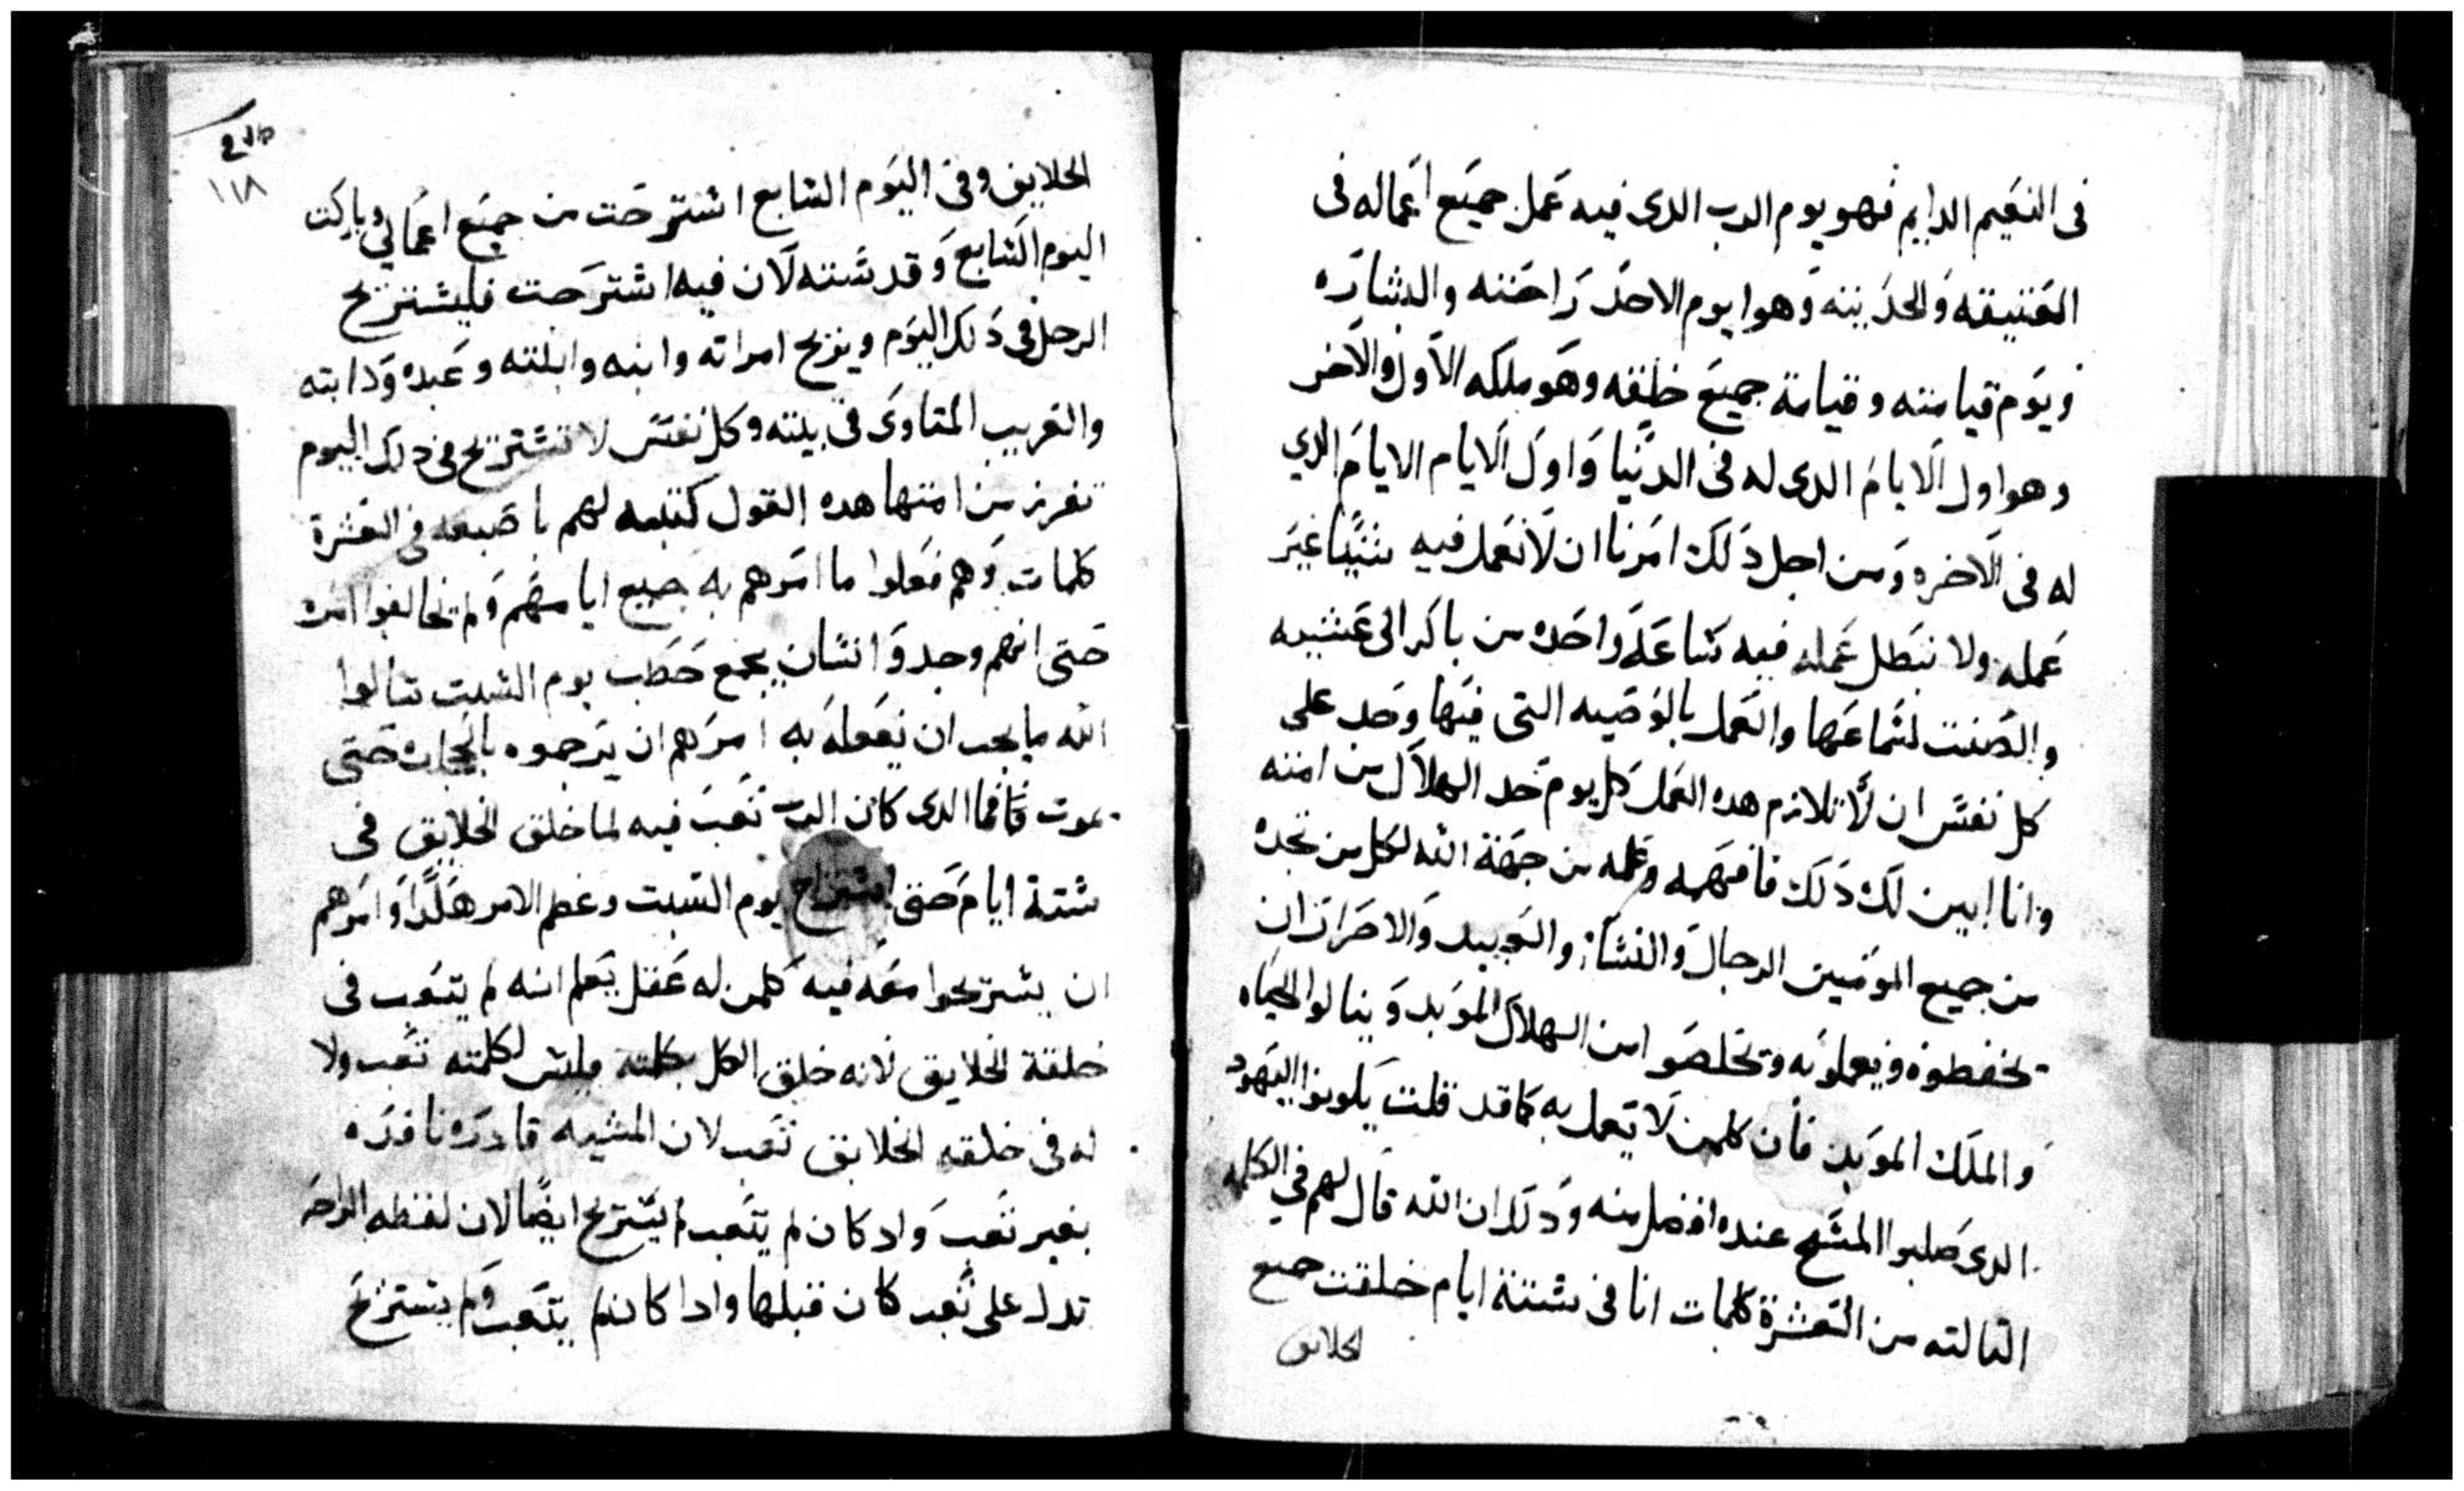 فى النعيم الدايم فهو يوم الرب الدى فيه عمل جميع اعماله فى
العتيقه والحديته وهوا يوم الاحد راحته والبشاره
ويوم قيامته وقيامة جميع خلقه وهو ملكه الاول والاخر
وهوا ول الايام الدى له فى الدنيا واول الايام الايام الدي
له فى الاخره ومن اجل دلك امرنا ان لا نعمل فيه شيًا غير
عمله ولا نبطل عمله فيه شاعه واحده من باكر الى عشيه
والصنت لشماعها والعمل بالوصيه التى فيها وحد على
كل نفش ان لا تلازم هده العمل كل يوم حد الهلاك من امته
وانا ابين لك دلك فافهمه وعلمه من جهة الله لكل من تجده
من جميع المومنين الرجال والنشا والعبيد والاحرار ان
يحفطوه ويعملو به وتخلصوا من الهلاك الموبد وينالوا الحياه
والملك الموبد فان كلمن لا يعمل به كما قد قلت يكونوا اليهود
الدى صلبوا المشيح عنده افضل منه ودلك ان الله قال لهم في الكلمه
التالته من العشرة كلمات انا فى شتة ايام خلقت جميع
الخلايق
١١٨
الخلايق وفى اليوم الشابع اشترحت من جميع اعمالي وباركت
اليوم الشابع وقدشته لان فيه اشترحت فليشتريح
الرجل فى دلك اليوم ويريح امراته وابنه وابنته وعبده ودابته
والغريب المتاوى فى بيته وكل نفش لا تشتريح فى دلك اليوم
تفرز من امتها هده القول كتبه لهم باصبعه فى العشرة
كلمات وهم فعلوا ما امرهم به جميع ايامهم ولم يخالفوا امره
حتى انهم وجدوا انشان يجمع حطب يوم الشبت شالوا
الله ما يجب ان يفعله به امرهم ان يرجموه بالحجاره حتى
يموت فاما الدى كان الرب تعب فيه لما خلق الخلايق فى
شتة ايام حتى اشتراح يوم الشبت وعطم الامر هكدا وامرهم
ان يشتريحوا معه فيه كلمن له عقل يعلم انه لم يتعب فى
خلقة الخلايق لانه خلق الكل بكلمته وليش لكلمته تعب ولا
له فى خلقه الخلايق تعب لان المشيه قادره نافده
بغير تعب واد كان لم يتعب لم يشتريح ايضًا لان لفظه الراحه
تدل على تعب كان قبلها وادا كان لم يتعب ولم يشتريح